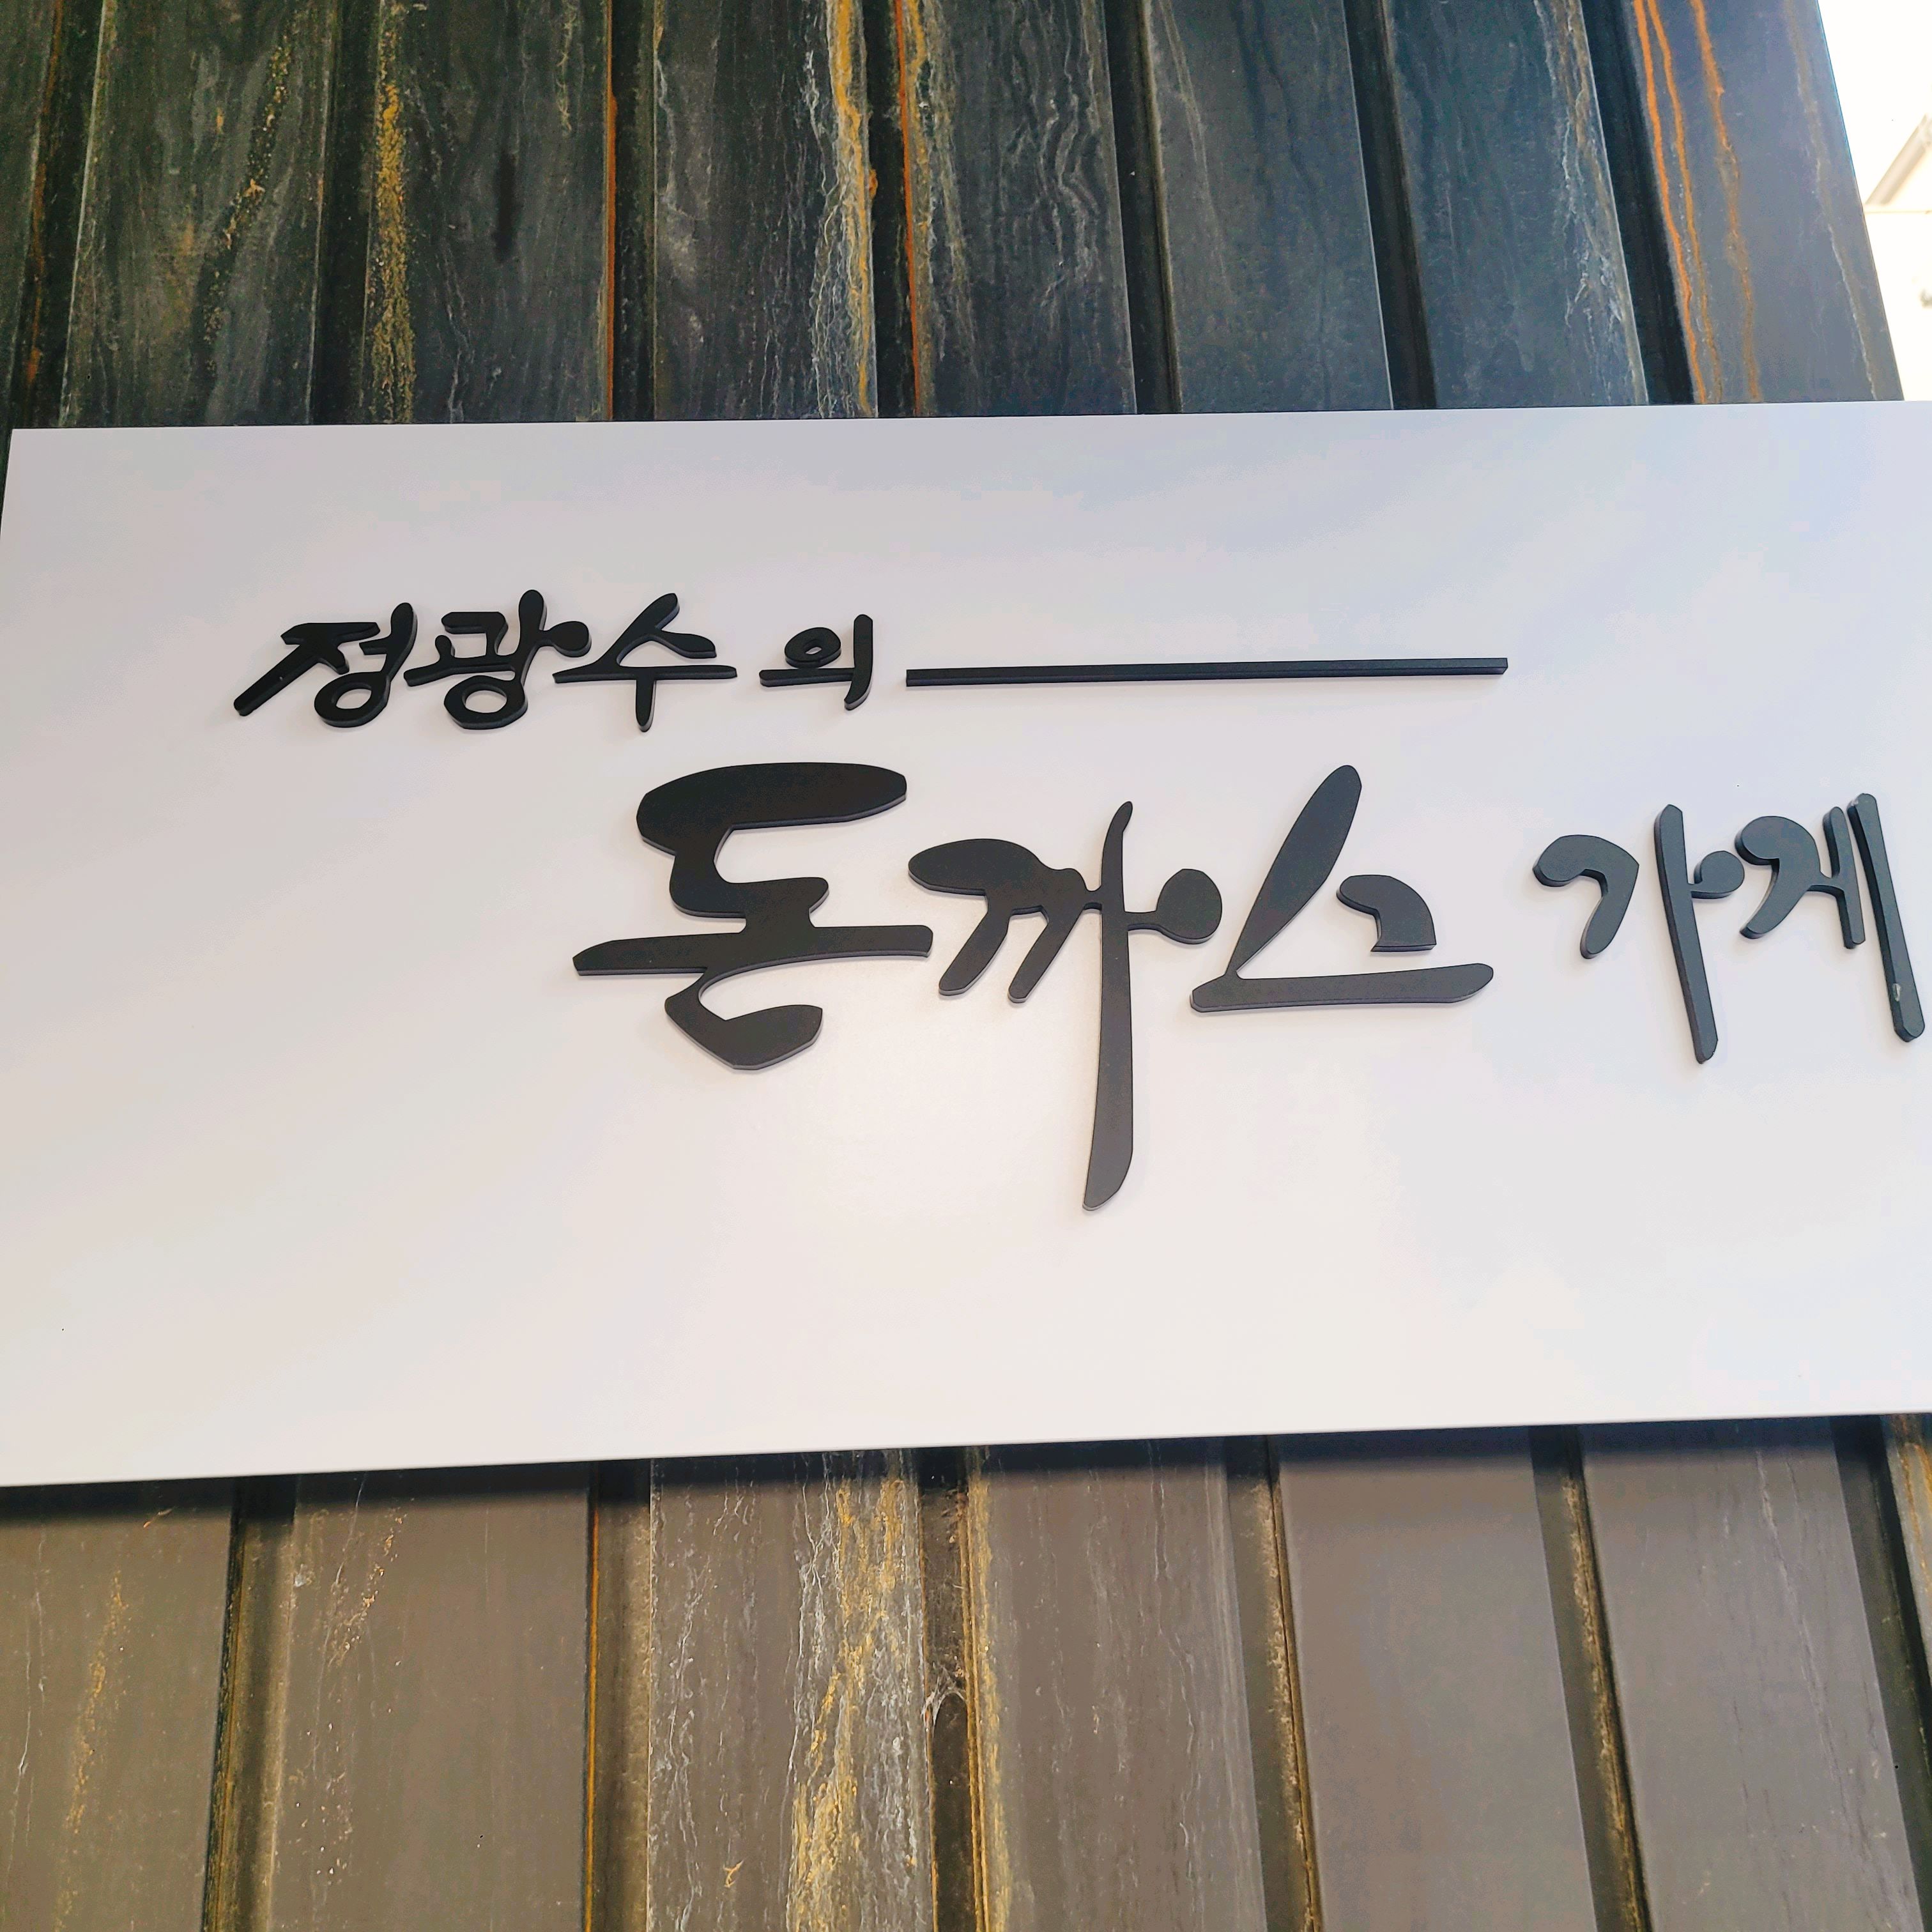 정광수의
돈까스 가게